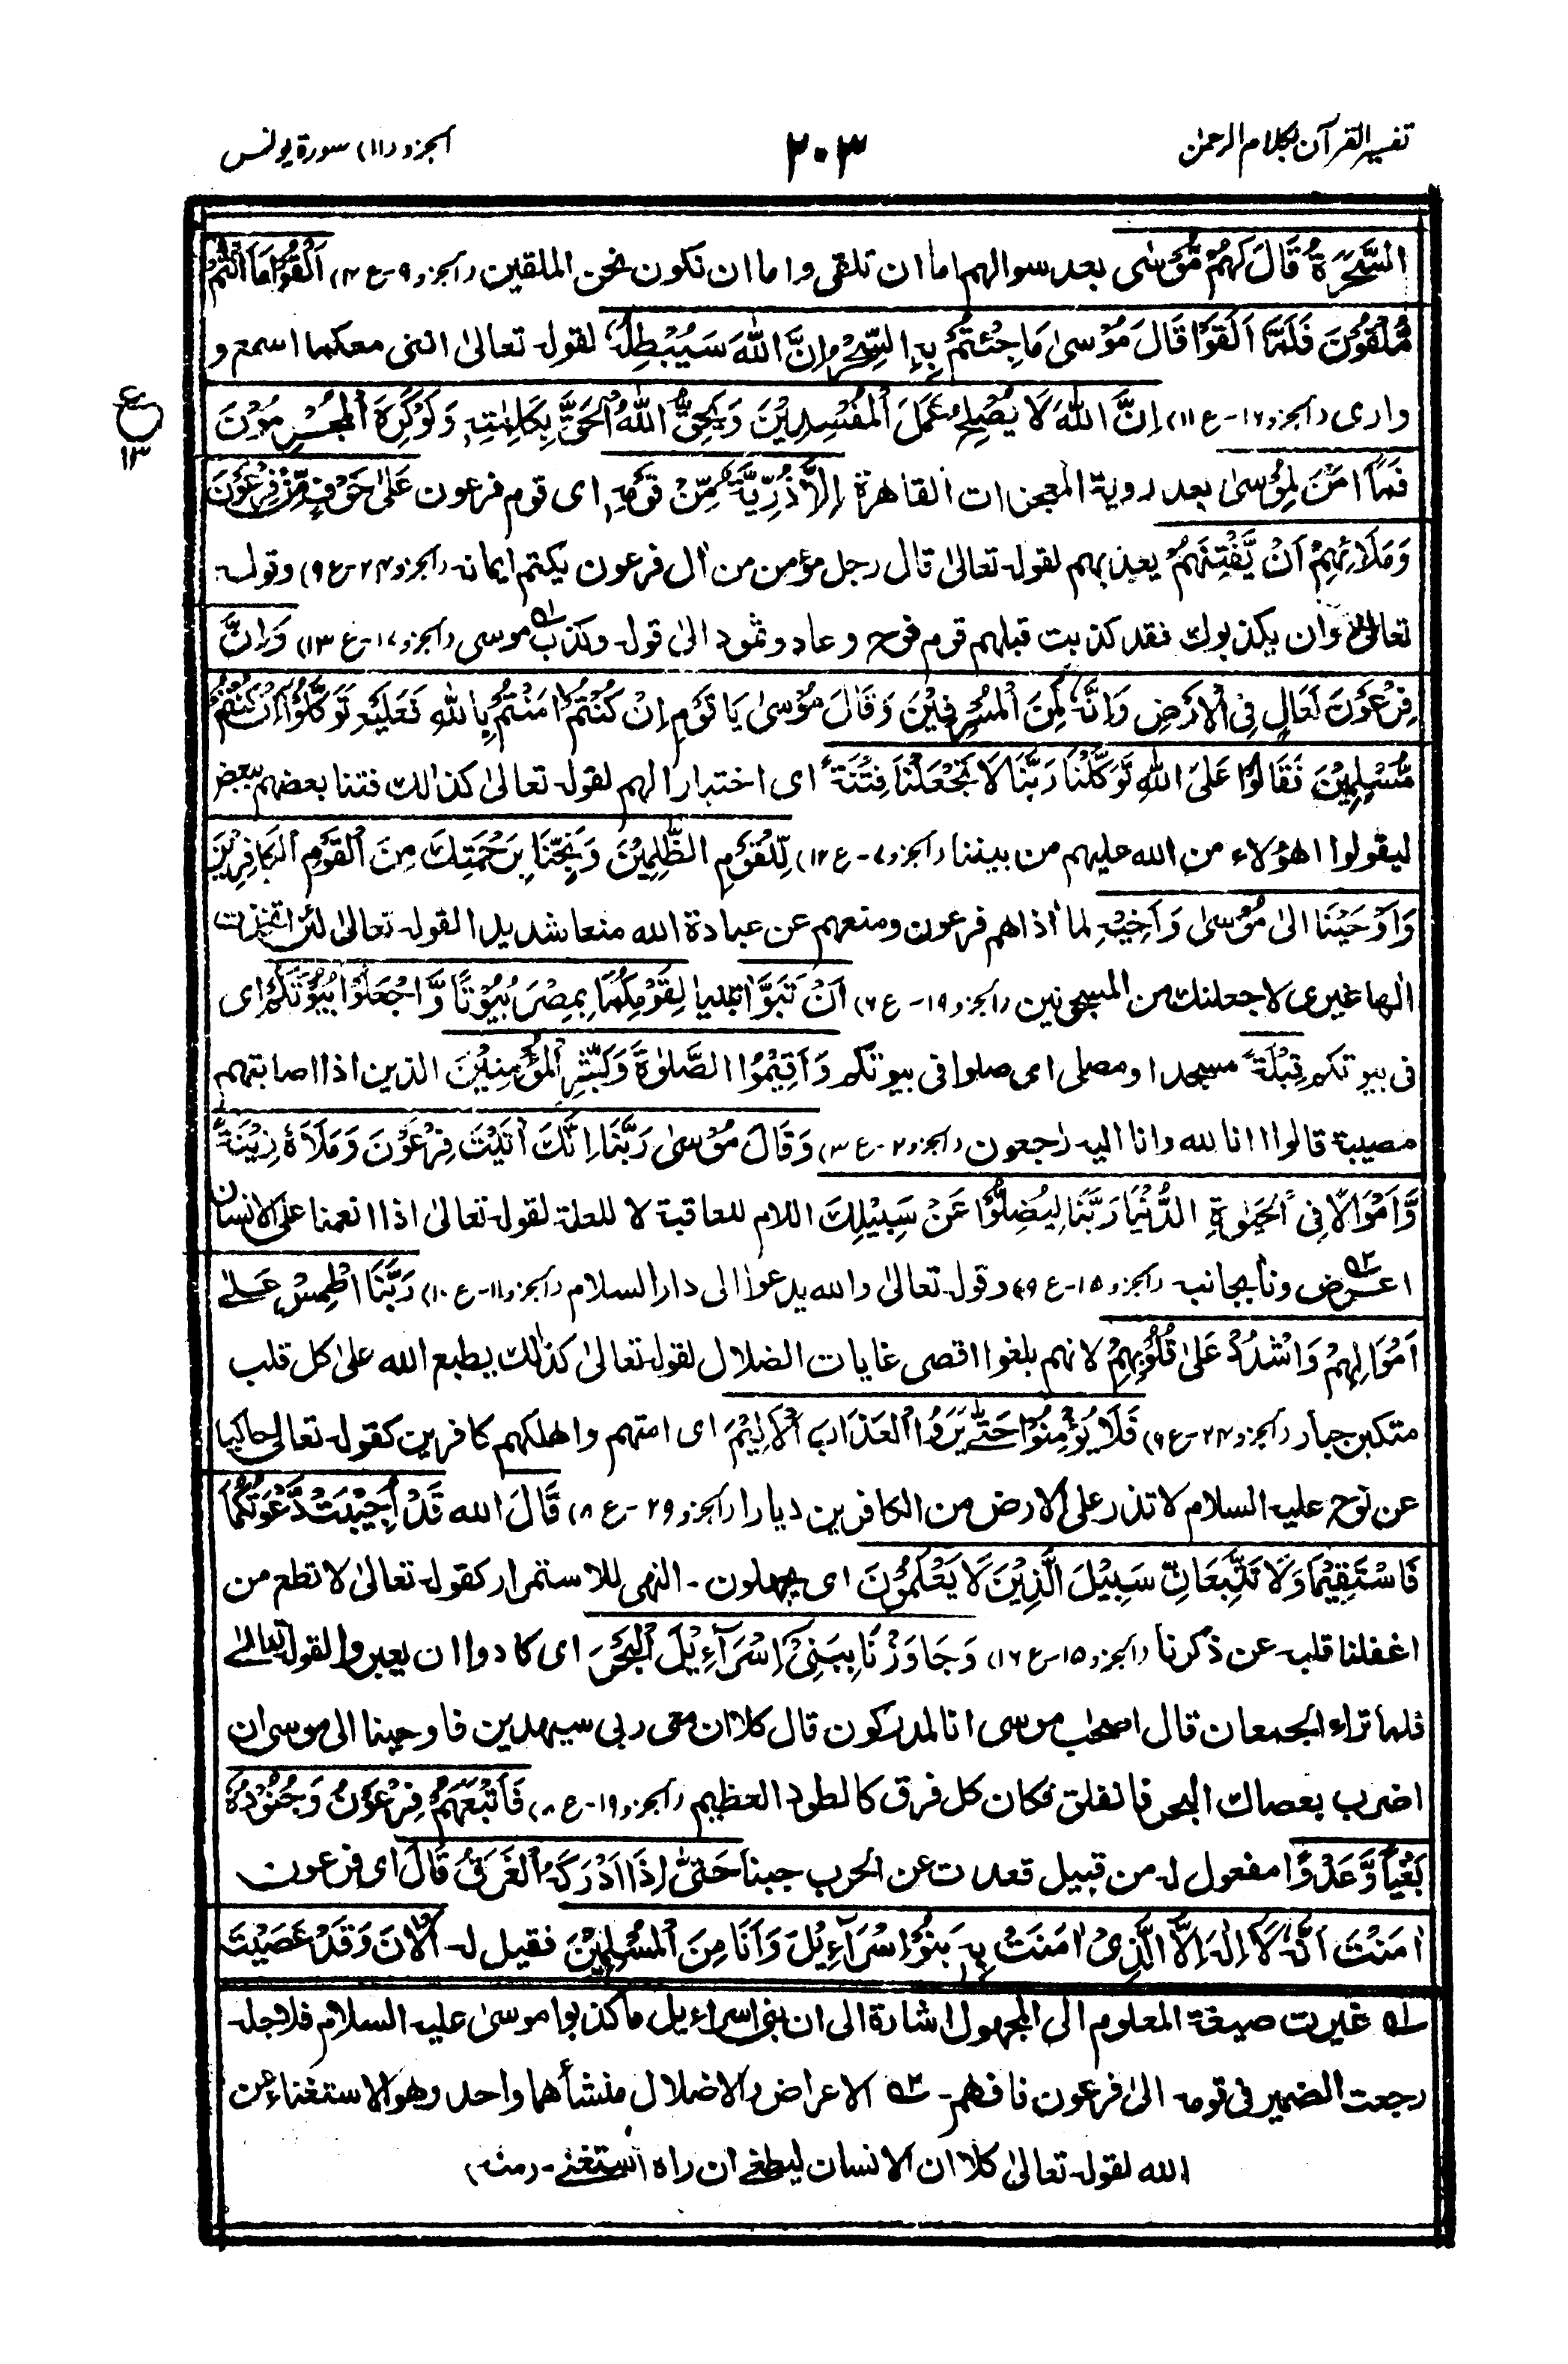 تفسیر القرآن بکلام الرحمٰن
٢٠٣
الجزو (١١) سورة یونس
السَّحَرَةُ قَالَ لَهُمْ مُّوْسٰى بعد سوالهم اما ان تلقى واما ان نكون نحن الملقين (الجزو ٩-ع ٤) اَلْقُوْا مَا اَنْتُمْ
مُّلْقُوْنَ فَلَمَّا اَلْقَوْا قَالَ مُوْسىٰ مَا جِئْتُمْ بِهِ السِّحْرُ اِنَّ اللهَ سَيُبْطِلُهٗ لقوله تعالىٰ اننى معكما اسمع و
وارى (الجزو ١٦-ع ١١) اِنَّ اللهَ لَا يُصْلِحُ عَمَلَ الْمُفْسِدِيْنَ وَيُحِقُّ اللهُ الْحَقَّ بِكَلِمٰتِهٖ وَلَوْ كَرِهَ الْمُجْرِمُوْنَ
ع
١٣
فَمَا اٰمَنَ لِمُوْسىٰ بعد روية المعجزات القاهرة اِلَّا ذُرِّيَّةٌ مِّنْ قَوْمِهٖ اى قوم فرعون عَلىٰ خَوْفٍ مِّنْ فِرْعَوْنَ
وَمَلَائِهِمْ اَنْ يَّفْتِنَهُمْ يعذبهم لقوله تعالىٰ قال رجل مؤمن من اٰل فرعون يكتم ايمانه (الجزو ٢٤-ع ٩) وقوله
تعالىٰ وان يكذبوك فقد كذبت قبلهم قوم نوح وعاد وثمود الىٰ قوله وكذب ١ه‍ موسى (الجزو ١٧-ع ١٣) وَاِنَّ
فِرْعَوْنَ لَعَالٍ فِى الْاَرْضِ وَاِنَّهٗ لَمِنَ الْمُسْرِفِيْنَ وَقَالَ مُوْسىٰ يَا قَوْمِ اِنْ كُنْتُمْ اٰمَنْتُمْ بِاللهِ فَعَلَيْهِ تَوَكَّلُوْا اِنْ كُنْتُمْ
مُّسْلِمِيْنَ فَقَالُوْا عَلَى اللهِ تَوَكَّلْنَا رَبَّنَا لَا تَجْعَلْنَا فِتْنَةً اى اختبارا لهم لقوله تعالىٰ كذالك فتنا بعضهم ببعض
ليقولوا اهؤلاء من الله عليهم من بيننا (الجزو ٧-ع ١٢) لِّلْقَوْمِ الظّٰلِمِيْنَ وَنَجِّنَا بِرَحْمَتِكَ مِنَ الْقَوْمِ الْكَافِرِيْنَ
وَاَوْحَيْنَا الىٰ مُوْسىٰ وَاَخِيْهِ لما اٰذاهم فرعون ومنعهم عن عبادة الله منعا شديدا لقوله تعالىٰ لئن اتخذت
الها غيرى لاجعلنك من المسجونين (الجزو ١٩-ع ٦) اَنْ تَبَوَّاٰ تليا لِقَوْمِكُمَا بِمِصْرَ بُيُوْتًا وَّاجْعَلُوْا بُيُوْتَكُمْ اى
فى بيوتكم قِبْلَةً مسجدا ومصلى اى صلوا فى بيوتكم وَاَقِيْمُوا الصَّلٰوةَ وَبَشِّرِ الْمُؤْمِنِيْنَ الذين اذا اصابتهم
مصيبة قالوا انا لله وانا اليه راجعون (الجزو ٢-ع ٣) وَقَالَ مُوْسىٰ رَبَّنَا اِنَّكَ اٰتَيْتَ فِرْعَوْنَ وَمَلَاَهٗ زِيْنَةً
وَّاَمْوَالًا فِى الْحَيٰوةِ الدُّنْيَا رَبَّنَا لِيُضِلُّوْا عَنْ سَبِيْلِكَ اللام للعاقبة لا للعلة لقوله تعالىٰ اذا انعمنا على الانسان
اعرض ٢ه‍ ونا بجانبه (الجزو ١٥-ع ٩) وقوله تعالىٰ والله يدعوا الى دار السلام (الجزو ١١-ع ١٠) رَبَّنَا اطْمِسْ عَلىٰ
اَمْوَالِهِمْ وَاشْدُدْ عَلىٰ قُلُوْبِهِمْ لانهم بلغوا اقصى غايات الضلال لقوله تعالىٰ كذٰلك يطبع الله علىٰ كل قلب
متكبر جبار (الجزو ٢٤-ع ٩) فَلَا يُؤْمِنُوْا حَتّٰى يَرَوُا الْعَذَابَ الْاَلِيْمَ اى امتهم واهلكهم كافرين كقوله تعالى حاكيا
عن نوح عليه السلام لا تذر على الارض من الكافرين ديارا (الجزو ٢٩-ع ٨) قَالَ الله قَدْ اُجِيْبَتْ دَّعْوَتُكُمَا
فَاسْتَقِيْمَا وَلَا تَتَّبِعَانِّ سَبِيْلَ الَّذِيْنَ لَا يَعْلَمُوْنَ اى يجهلون - النهى للاستمرار كقوله تعالىٰ لا تطع من
اغفلنا قلبه عن ذكرنا (الجزو ١٥-ع ١٦) وَجَاوَزْنَا بِبَنِىْ اِسْرَآءِيْلَ الْبَحْرَ اى كادوا ان يعبروا لقوله تعالىٰ
فلما تراء الجمعان قال اصحٰب موسى انا لمدركون قال كلا ان معى ربى سيهدين فاوحينا الى موسى ان
اضرب بعصاك البحر فانفلق فكان كل فرق كالطود العظيم (الجزو ١٩-ع ٨) فَاَتْبَعَهُمْ فِرْعَوْنُ وَجُنُوْدُهٗ
بَغْيًا وَّعَدْوًا مفعول له من قبيل قعدت عن الحرب جبنا حَتّٰى اِذَا اَدْرَكَهُ الْغَرَقُ قَالَ اى فرعون
اٰمَنْتُ اَنَّهٗ لَا اِلٰهَ اِلَّا الَّذِىْ اٰمَنَتْ بِهٖ بَنُوْ اِسْرَآءِيْلَ وَاَنَا مِنَ الْمُسْلِمِيْنَ فقيل له اٰلْاٰنَ وَقَدْ عَصَيْتَ
١ه‍ غيرت صيغة المعلوم الى المجهول اشارة الى ان بنى اسراءيل ما كذبوا موسىٰ عليه السلام فلاجله
رجعت الضمير فى قومه الىٰ فرعون فافهم - ٢ه‍ الاعراض والاضلال منشأهما واحد وهو الاستغناء عن
الله لقوله تعالىٰ كلا ان الانسان ليطغىٰ ان راه استغنىٰ - (منه)